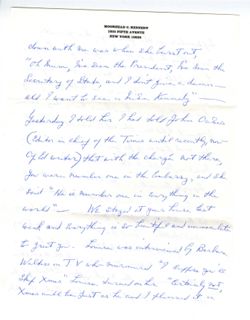 MOORHEAD C. KENNEDY
1020 FIFTH AVENUE
NEW YORK 10028
down with me was when she burst out
"Oh Mum, I've seen the President, I've seen the
Secretary of State, and I don't give a damn —
all I want to see is Mike Kennedy" —
Yesterday I told her I had told John Oakes
(Editor in chief of the Times until recently, now
Op Ed writer) that with the chargé out there,
you were number one in the Embassy, and she
said "He is number one in everything in the
world" — We stayed at your house last
week and everything is so beautiful and immaculate
to greet you. Louisa was interviewed by Barbara
Walters on TV who murmured "I suppose you'll
skip Xmas" Louisa turned on her "Certainly not,
Xmas will be just as he and I planned it in